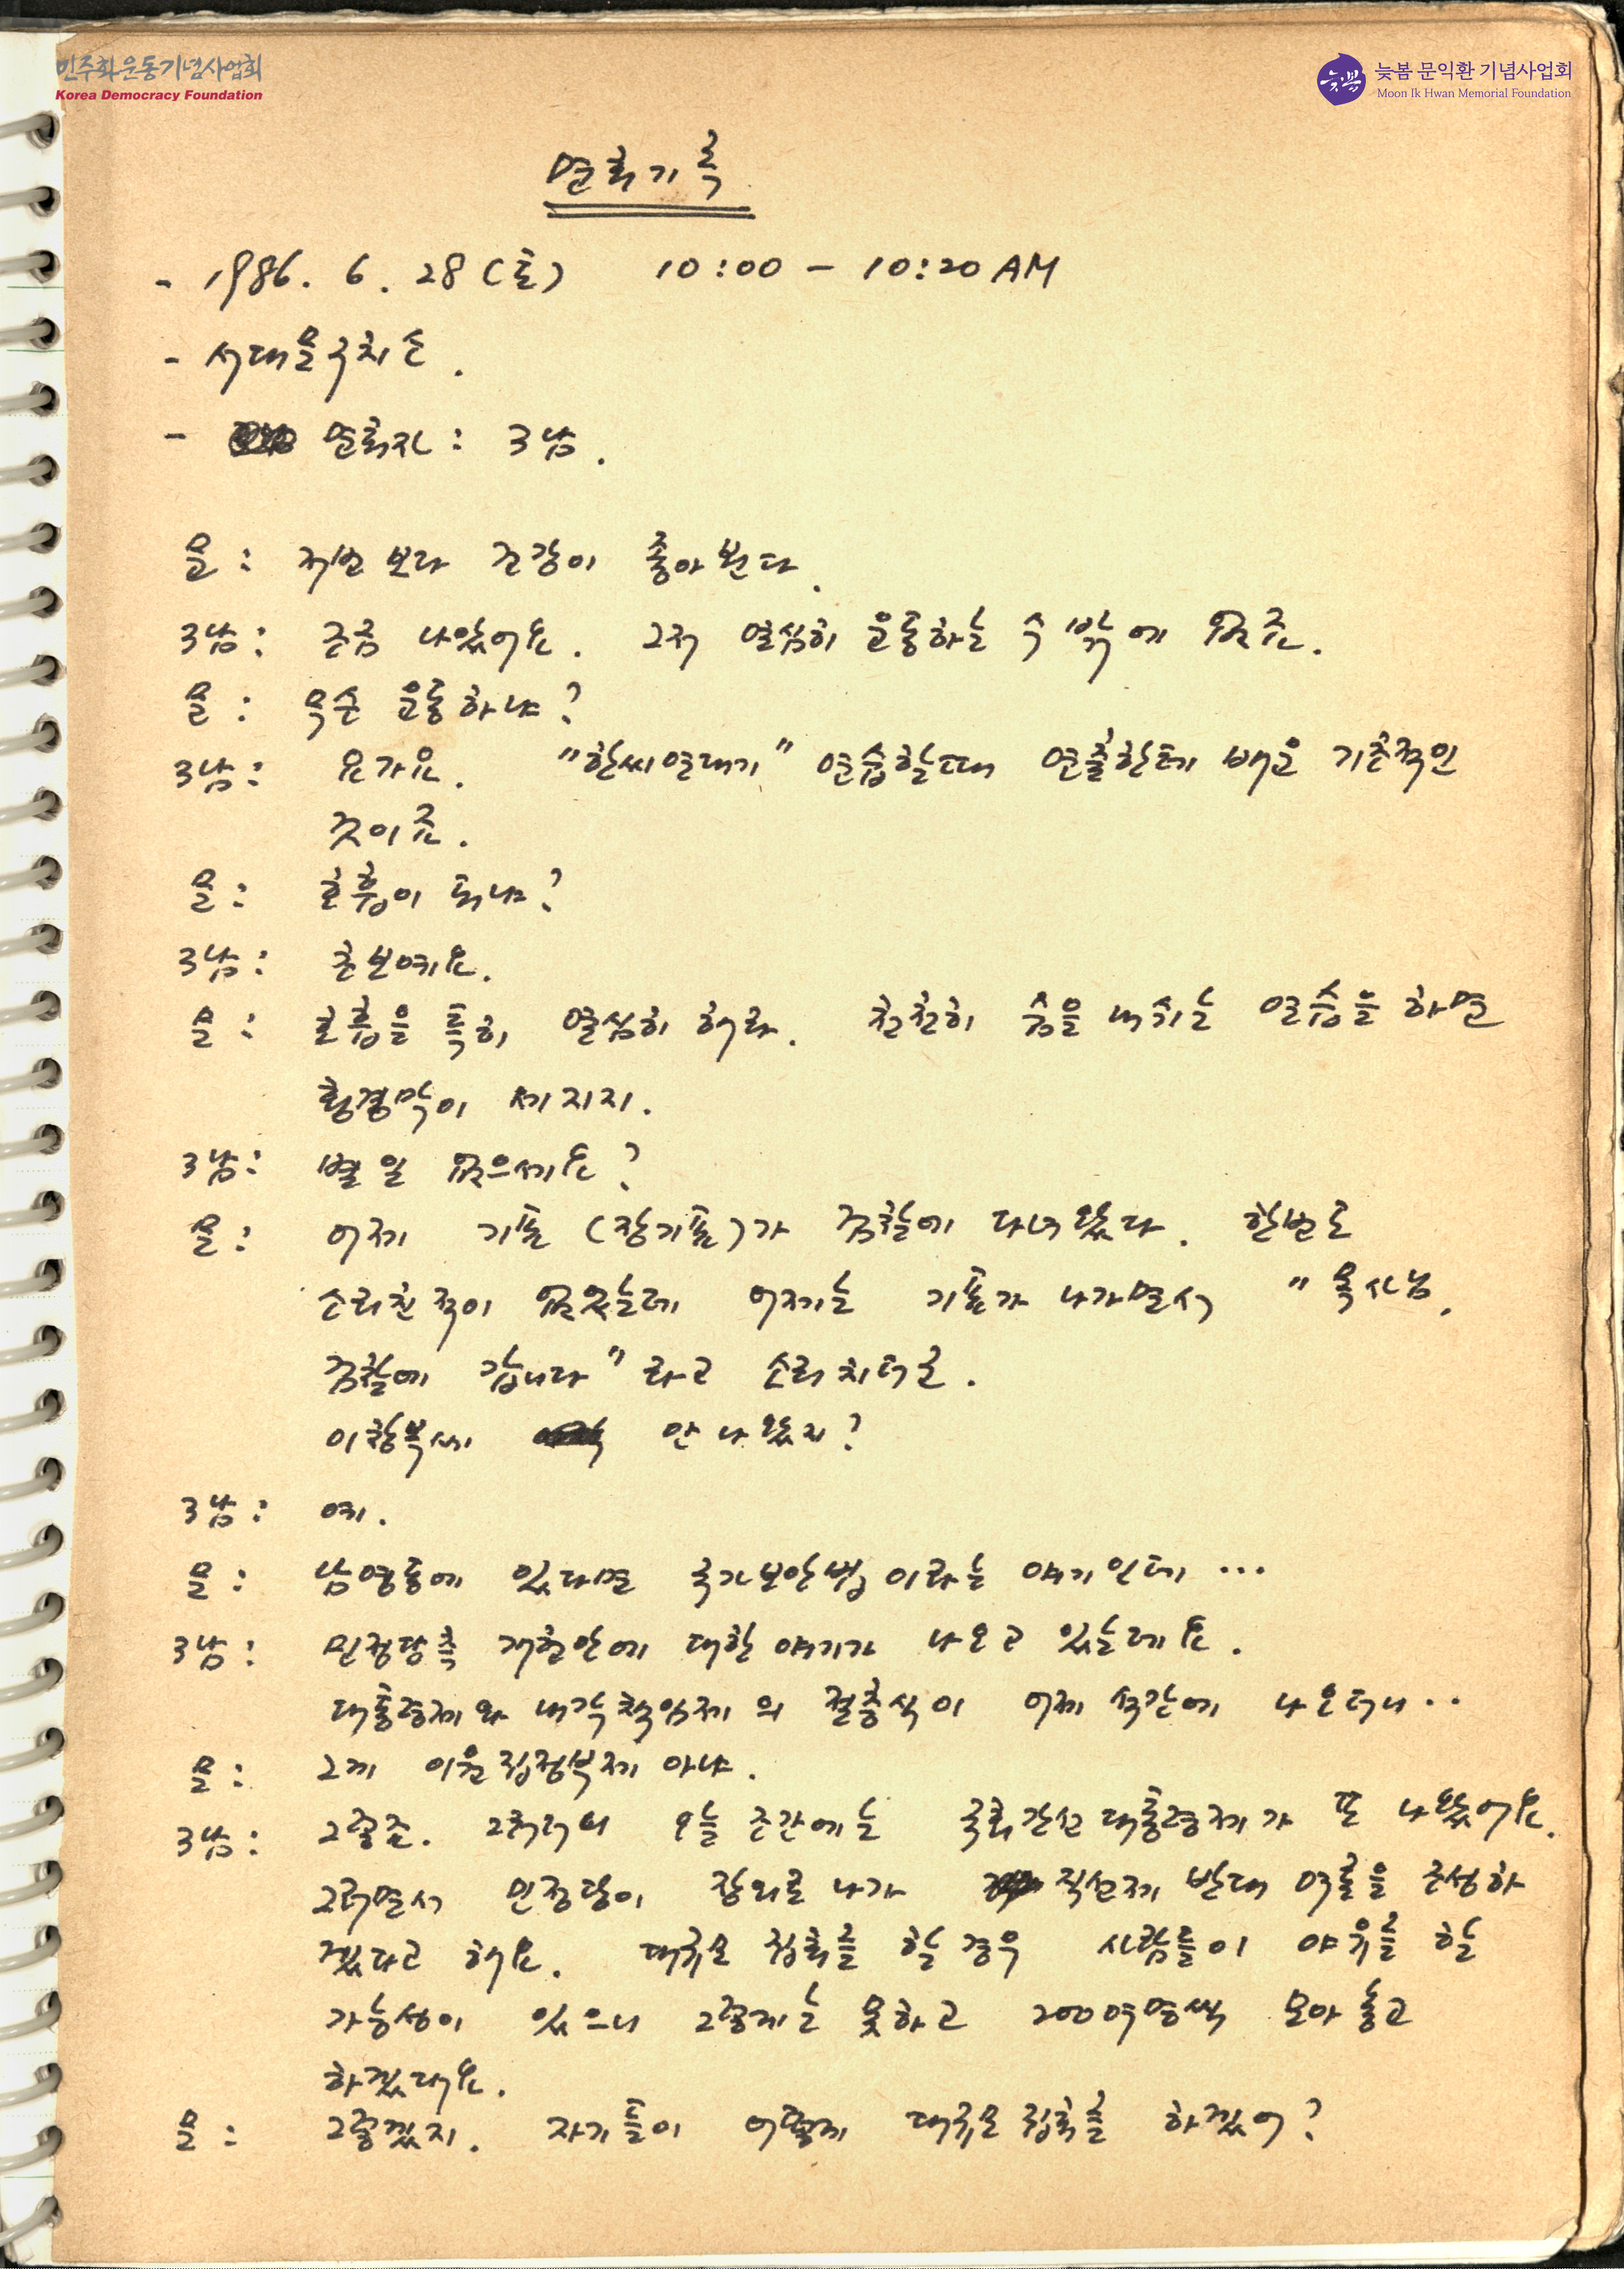 민주화운동기념사업회
Korea Democracy Foundation
늦봄
늦봄 문익환 기념사업회
Moon Ik Hwan Memorial Foundation
면회기록
- 1986. 6. 28 (토) 10:00 - 10:20 AM
- 서대문구치소.
- 면회자: 3남.
문: 저번 보다 건강이 좋아 뵌다.
3남: 조금 나았어요. 그저 열심히 운동하는 수 밖에 없죠.
문: 무슨 운동하냐?
3남: 요가요. "한씨연대기" 연습할때 연출한테 배운 기초적인
것이죠.
문: 호흡이 되냐?
3남: 초보예요.
문: 호흡을 특히 열심히 해라. 천천히 숨을 내쉬는 연습을 하면
횡경막이 세지지.
3남: 별 일 없으세요?
문: 어제 기표 (장기표)가 검찰에 다녀왔다. 한번도
소리친 적이 없었는데 어제는 기표가 나가면서 "목사님.
검찰에 갑니다" 라고 소리치더군.
이창복씨 안 나왔지?
3남: 예.
문: 남영동에 있다면 국가보안법이라는 얘기인데 ...
3남: 민정당측 개헌안에 대한 얘기가 나오고 있는데요.
대통령제와 내각책임제의 절충식이 어제 석간에 나오더니..
문: 그게 이원집정부제 아냐.
3남: 그렇죠. 그러더니 오늘 조간에는 국회간선대통령제가 또 나왔어요.
그러면서 민정당이 장외로 나가 직선제 반대 여론을 조성하
겠다고 해요. 대규모 집회를 할 경우 사람들이 야유를 할
가능성이 있으니 그렇게는 못하고 200여명씩 모아 놓고
하겠대요.
문: 그렇겠지. 자기들이 어떻게 대규모 집회를 하겠어?